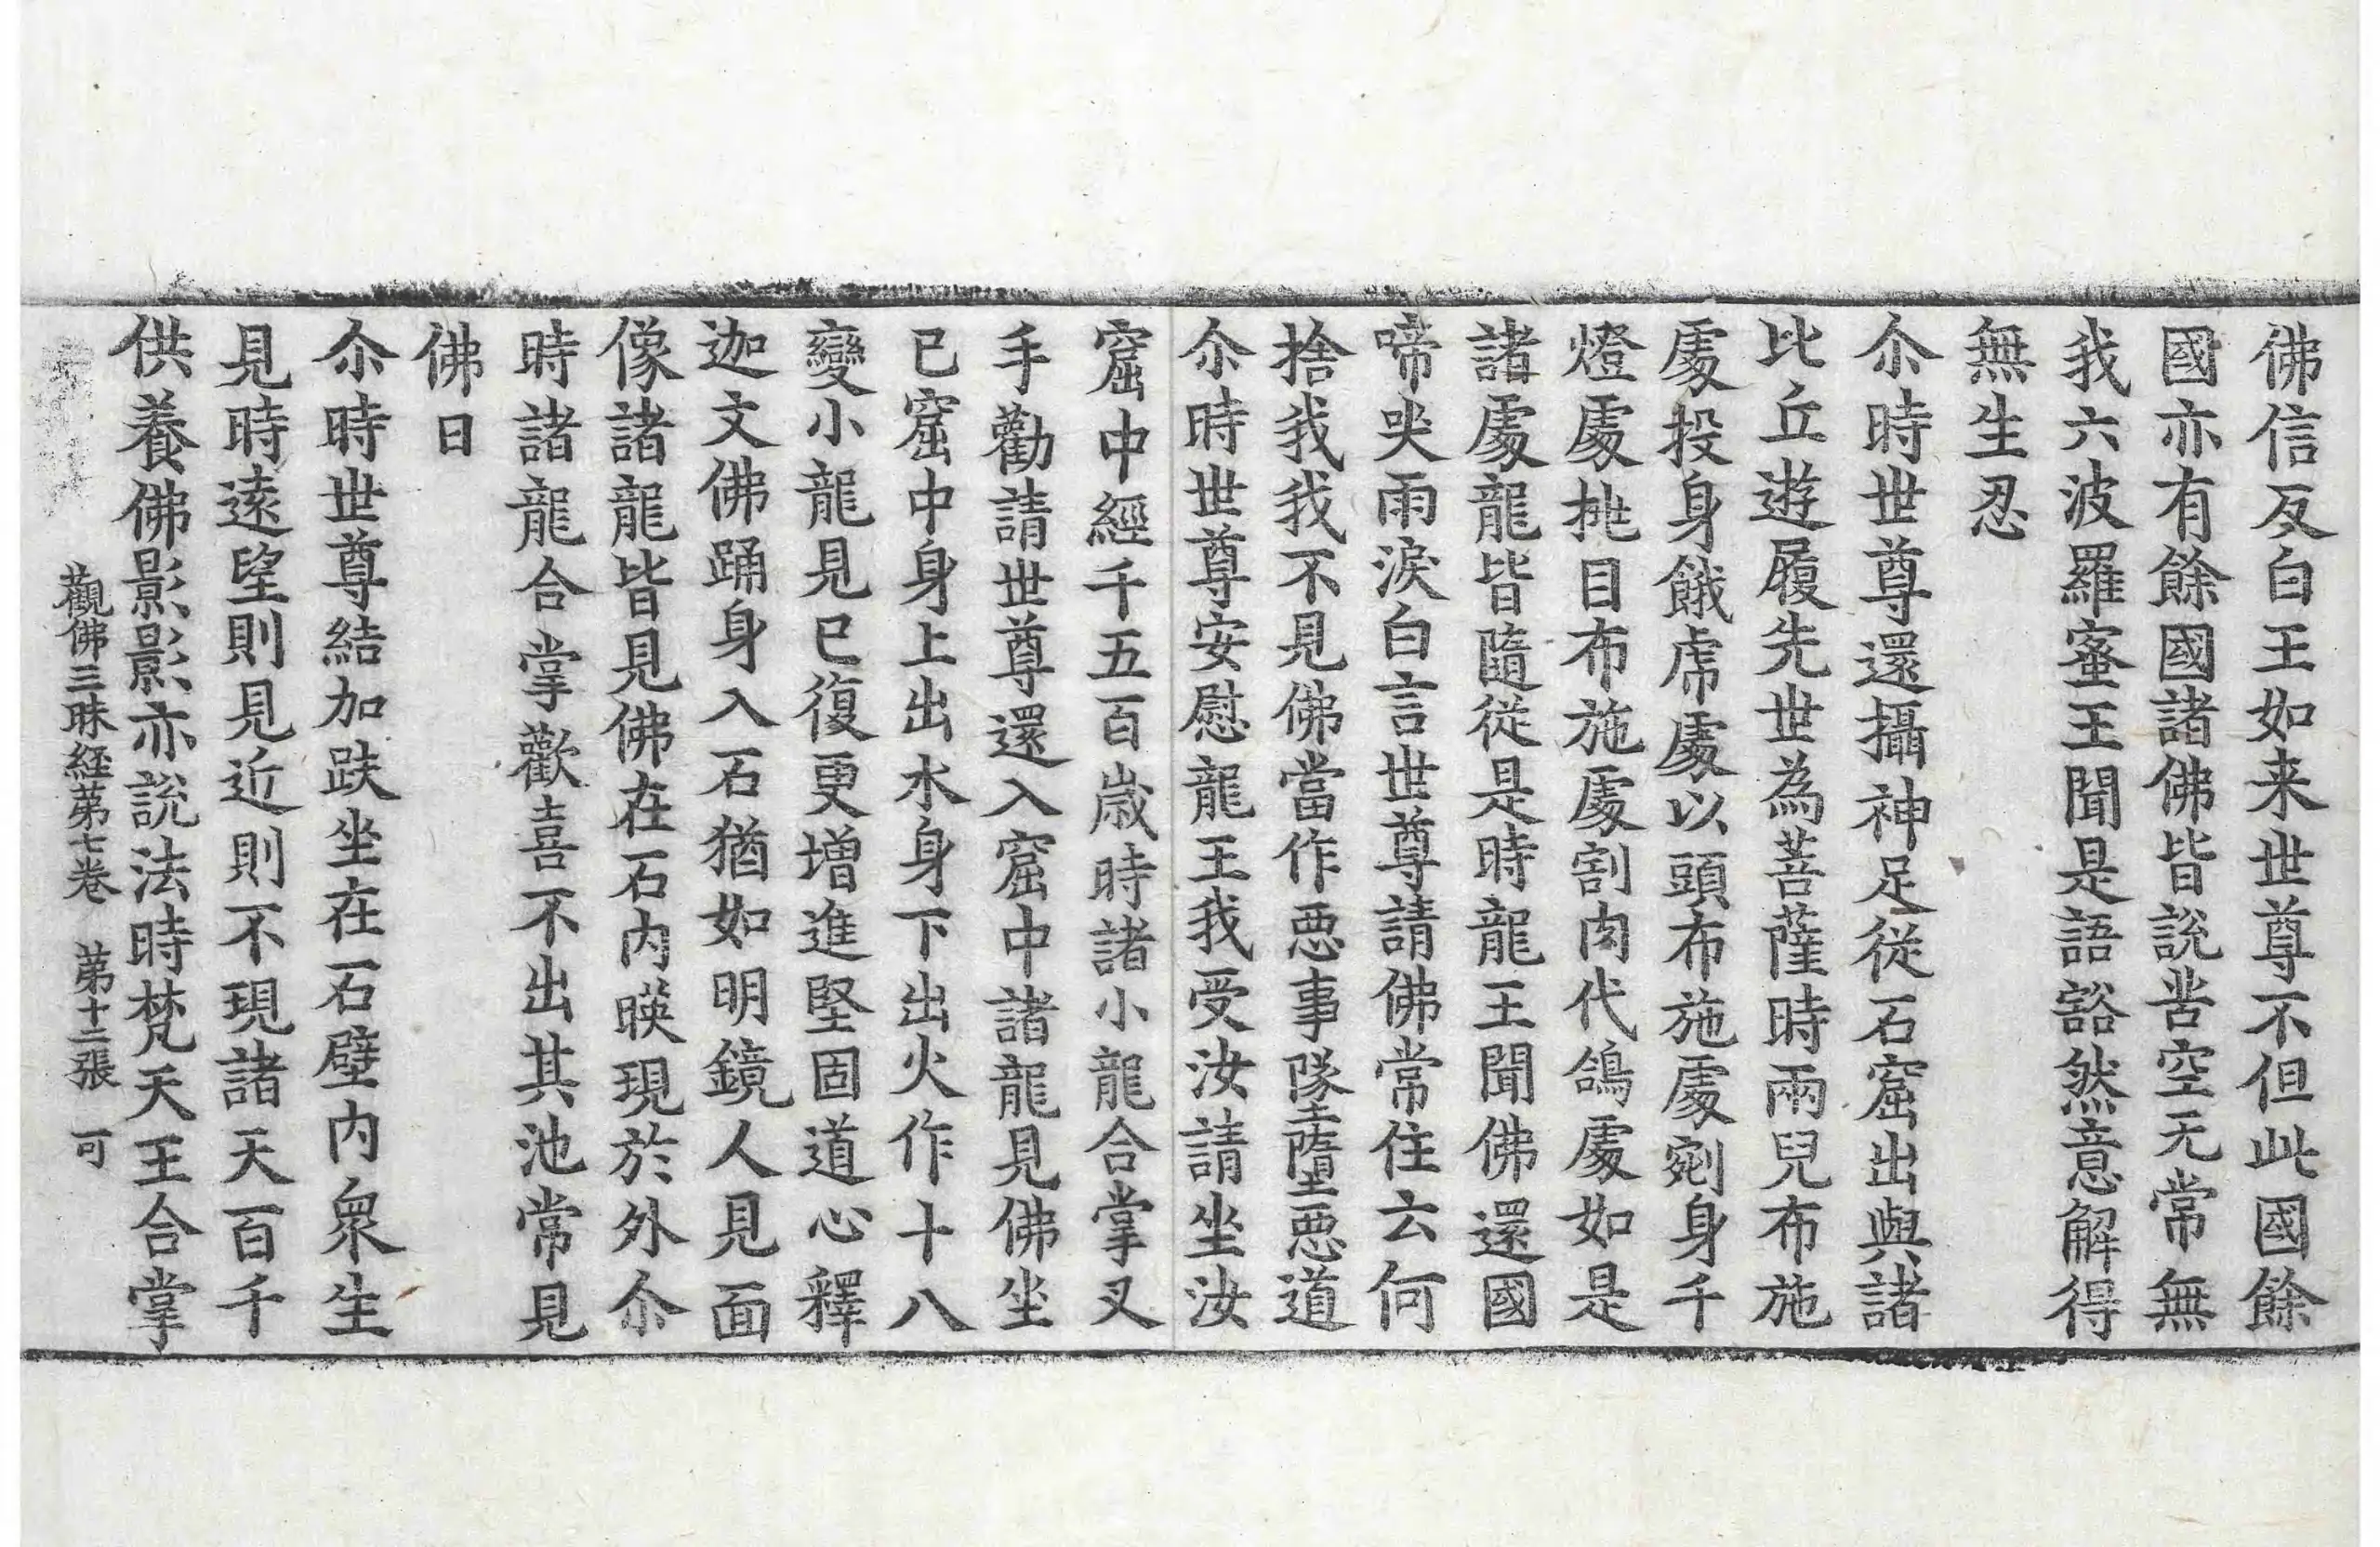 佛信反白王如来世尊不但此國餘
國亦有餘國諸佛皆說苦空无常無
我六波羅蜜王聞是語豁然意解得
無生忍
尒時世尊還攝神足從石窟出與諸
比丘遊履先世為菩薩時兩兒布施
處投身餓虎處以頭布施處剜身千
燈處挑目布施處割肉代鴿處如是
諸處龍皆隨從是時龍王聞佛還國
啼哭雨淚白言世尊請佛常住云何
捨我我不見佛當作惡事墜墮惡道
尒時世尊安慰龍王我受汝請坐汝
窟中經千五百歲時諸小龍合掌叉
手勸請世尊還入窟中諸龍見佛坐
已窟中身上出水身下出火作十八
變小龍見已復更增進堅固道心釋
迦文佛踊身入石猶如明鏡人見面
像諸龍皆見佛在石内暎現於外尒
時諸龍合掌歡喜不出其池常見
佛日
尒時世尊結加趺坐在石壁内衆生
見時遠望則見近則不現諸天百千
供養佛影影亦說法時梵天王合掌
觀佛三昧経第七卷　第十二張　可